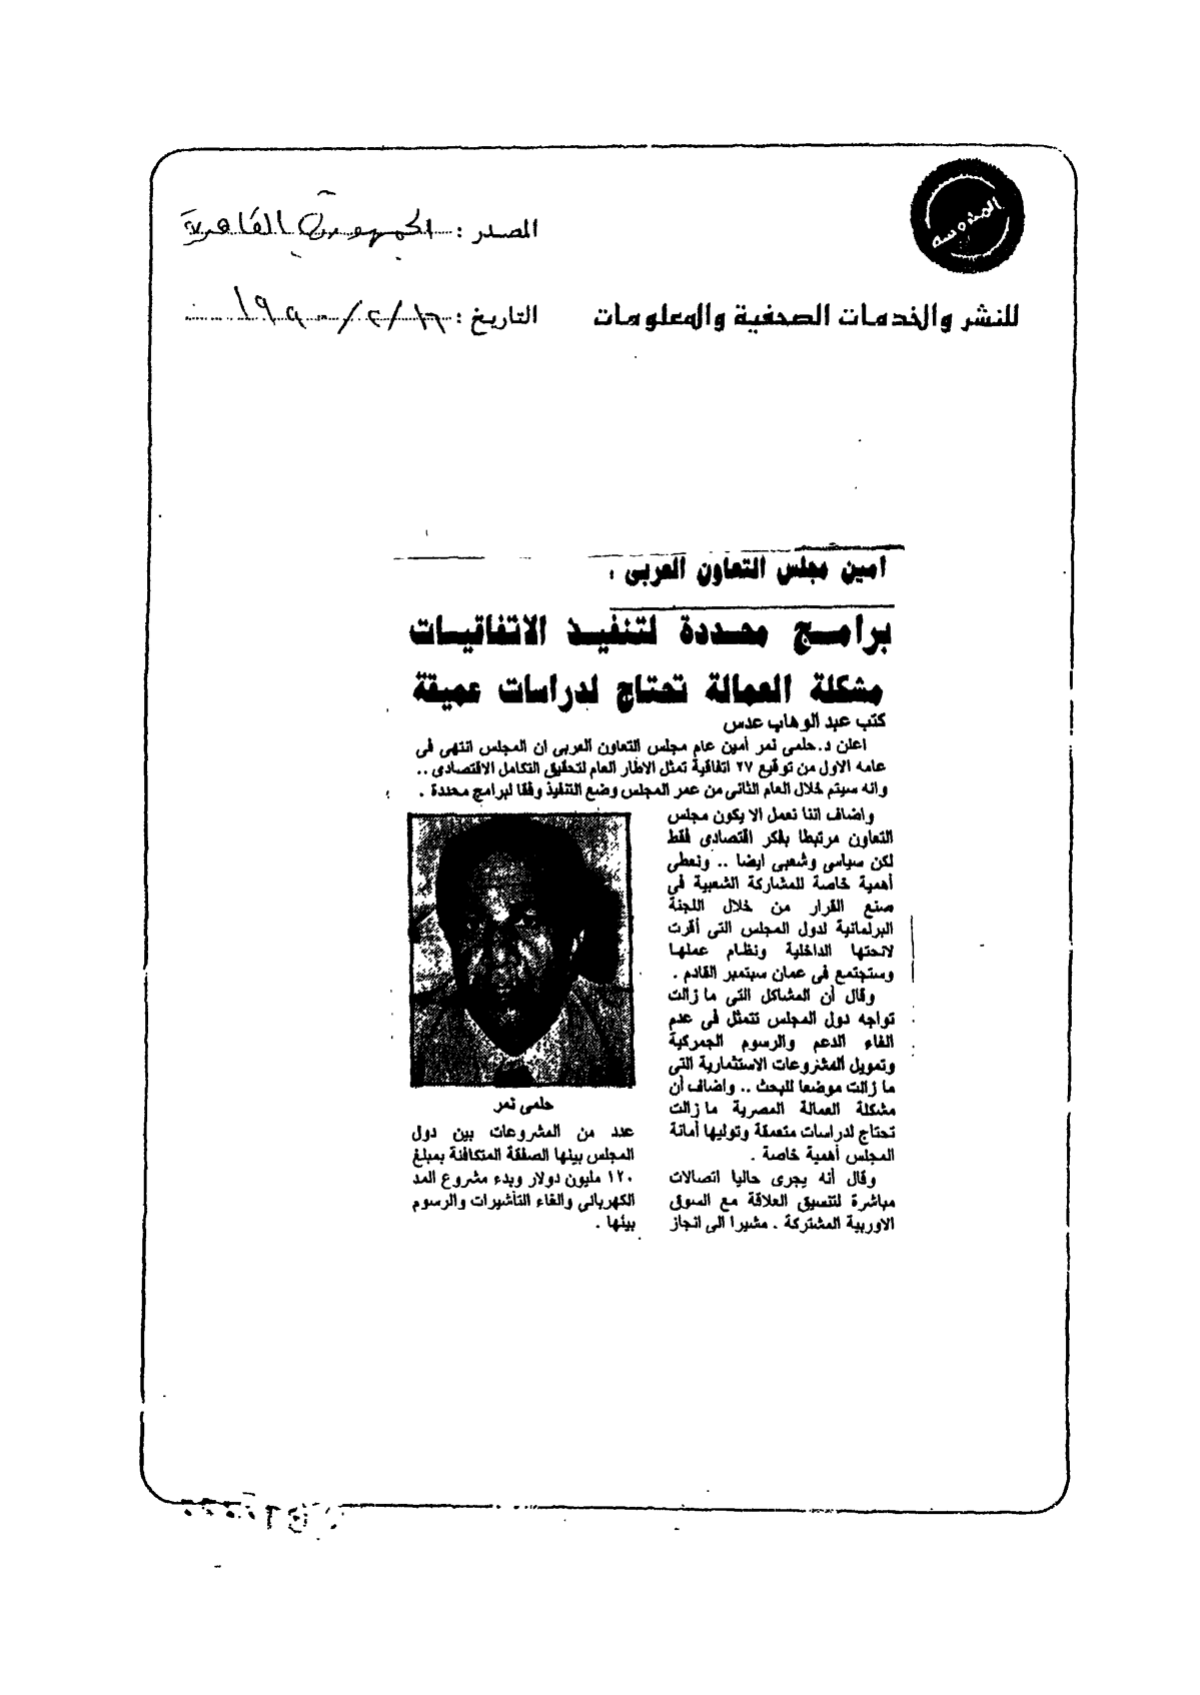 المحروسه
المصدر : الجمهورية القاهرية
للنشر والخدمات الصحفية والمعلومات
التاريخ : ١٦/٢/١٩٩٠
امين مجلس التعاون العربى :
برامـج محـددة لتنفيـذ الاتفاقيـات
مشكلة العمالة تحتاج لدراسات عميقة
كتب عبد الوهاب عدس
اعلن د.حلمى نمر أمين عام مجلس التعاون العربى ان المجلس انتهى فى
عامه الاول من توقيع ٢٧ اتفاقية تمثل الاطار العام لتحقيق التكامل الاقتصادى ..
وانه سيتم خلال العام الثانى من عمر المجلس وضع التنفيذ وفقا لبرامج محددة .
واضاف اننا نعمل الا يكون مجلس
التعاون مرتبطا بفكر اقتصادى فقط
لكن سياسى وشعبى ايضا .. ونعطى
أهمية خاصة للمشاركة الشعبية فى
صنع القرار من خلال اللجنة
البرلمانية لدول المجلس التى أقرت
لائحتها الداخلية ونظام عملها
وستجتمع فى عمان سبتمبر القادم .
وقال أن المشاكل التى ما زالت
تواجه دول المجلس تتمثل فى عدم
الغاء الدعم والرسوم الجمركية
وتمويل المشروعات الاستثمارية التى
ما زالت موضعا للبحث .. واضاف أن
مشكلة العمالة المصرية ما زالت
تحتاج لدراسات متعمقة وتوليها أمانة
المجلس أهمية خاصة .
وقال أنه يجرى حاليا اتصالات
مباشرة لتنسيق العلاقة مع السوق
الاوربية المشتركة . مشيرا الى انجاز
حلمى نمر
عدد من المشروعات بين دول
المجلس بينها الصفقة المتكافئة بمبلغ
١٢٠ مليون دولار وبدء مشروع المد
الكهربائى والغاء التأشيرات والرسوم
بينها .